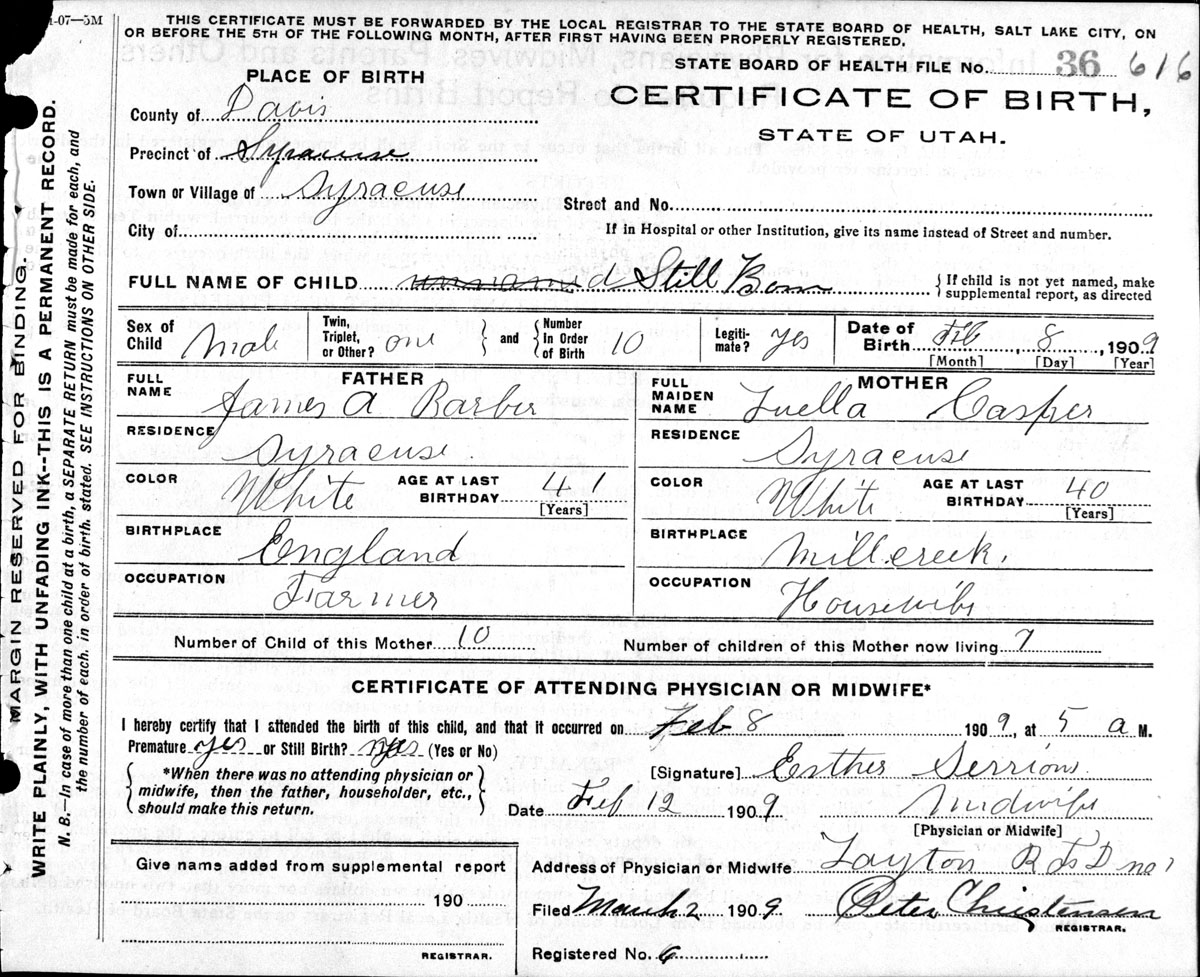 1-07—5M
THIS CERTIFICATE MUST BE FORWARDED BY THE LOCAL REGISTRAR TO THE STATE BOARD OF HEALTH, SALT LAKE CITY, ON
OR BEFORE THE 5TH OF THE FOLLOWING MONTH, AFTER FIRST HAVING BEEN PROPERLY REGISTERED.
STATE BOARD OF HEALTH FILE No. 36 616
PLACE OF BIRTH
CERTIFICATE OF BIRTH,
STATE OF UTAH.
County of Davis
Precinct of Syracuse
Town or Village of Syracuse
Street and No.
City of
If in Hospital or other Institution, give its name instead of Street and number.
FULL NAME OF CHILD unnamed Still Born { If child is not yet named, make
supplemental report, as directed
Sex of Child Male
Twin, Triplet, or Other? one } and { Number in Order of Birth 10
Legitimate? yes
Date of Birth Feb 8, 1909
[Month] [Day] [Year]
FATHER
FULL NAME James A Barber
RESIDENCE Syracuse
COLOR White AGE AT LAST BIRTHDAY 41
[Years]
BIRTHPLACE England
OCCUPATION Farmer
MOTHER
FULL MAIDEN NAME Luella Casper
RESIDENCE Syracuse
COLOR White AGE AT LAST BIRTHDAY 40
[Years]
BIRTHPLACE Millcreek.
OCCUPATION Housewife
Number of Child of this Mother 10 Number of children of this Mother now living 7
CERTIFICATE OF ATTENDING PHYSICIAN OR MIDWIFE*
I hereby certify that I attended the birth of this child, and that it occurred on Feb 8 1909, at 5 a M.
Premature yes or Still Birth? yes (Yes or No)
{ *When there was no attending physician or
midwife, then the father, householder, etc.,
should make this return. }
[Signature] Esther
Date Feb 12 1909 Midwife
[Physician or Midwife]
Give name added from supplemental report
190
REGISTRAR.
Address of Physician or Midwife Layton R F D no 1
Filed March 2 1909 Peter Christensen
REGISTRAR.
Registered No. 6
MARGIN RESERVED FOR BINDING.
WRITE PLAINLY, WITH UNFADING INK--THIS IS A PERMANENT RECORD.
N. B.—In case of more than one child at a birth, a SEPARATE RETURN must be made for each, and
the number of each, in order of birth, stated. SEE INSTRUCTIONS ON OTHER SIDE.